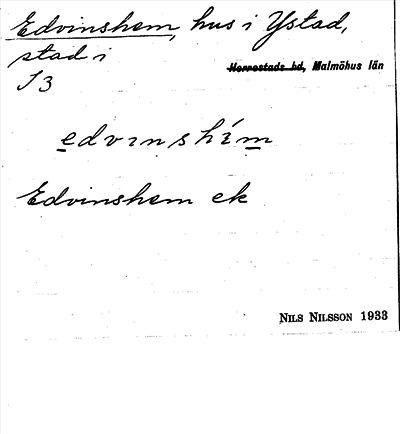 Edvinshem, hus i Ystad,
stad i
Herrestads hd, Malmöhus län
S 3
edvınshím
Edvinshem ek
NILS NILSSON 1933